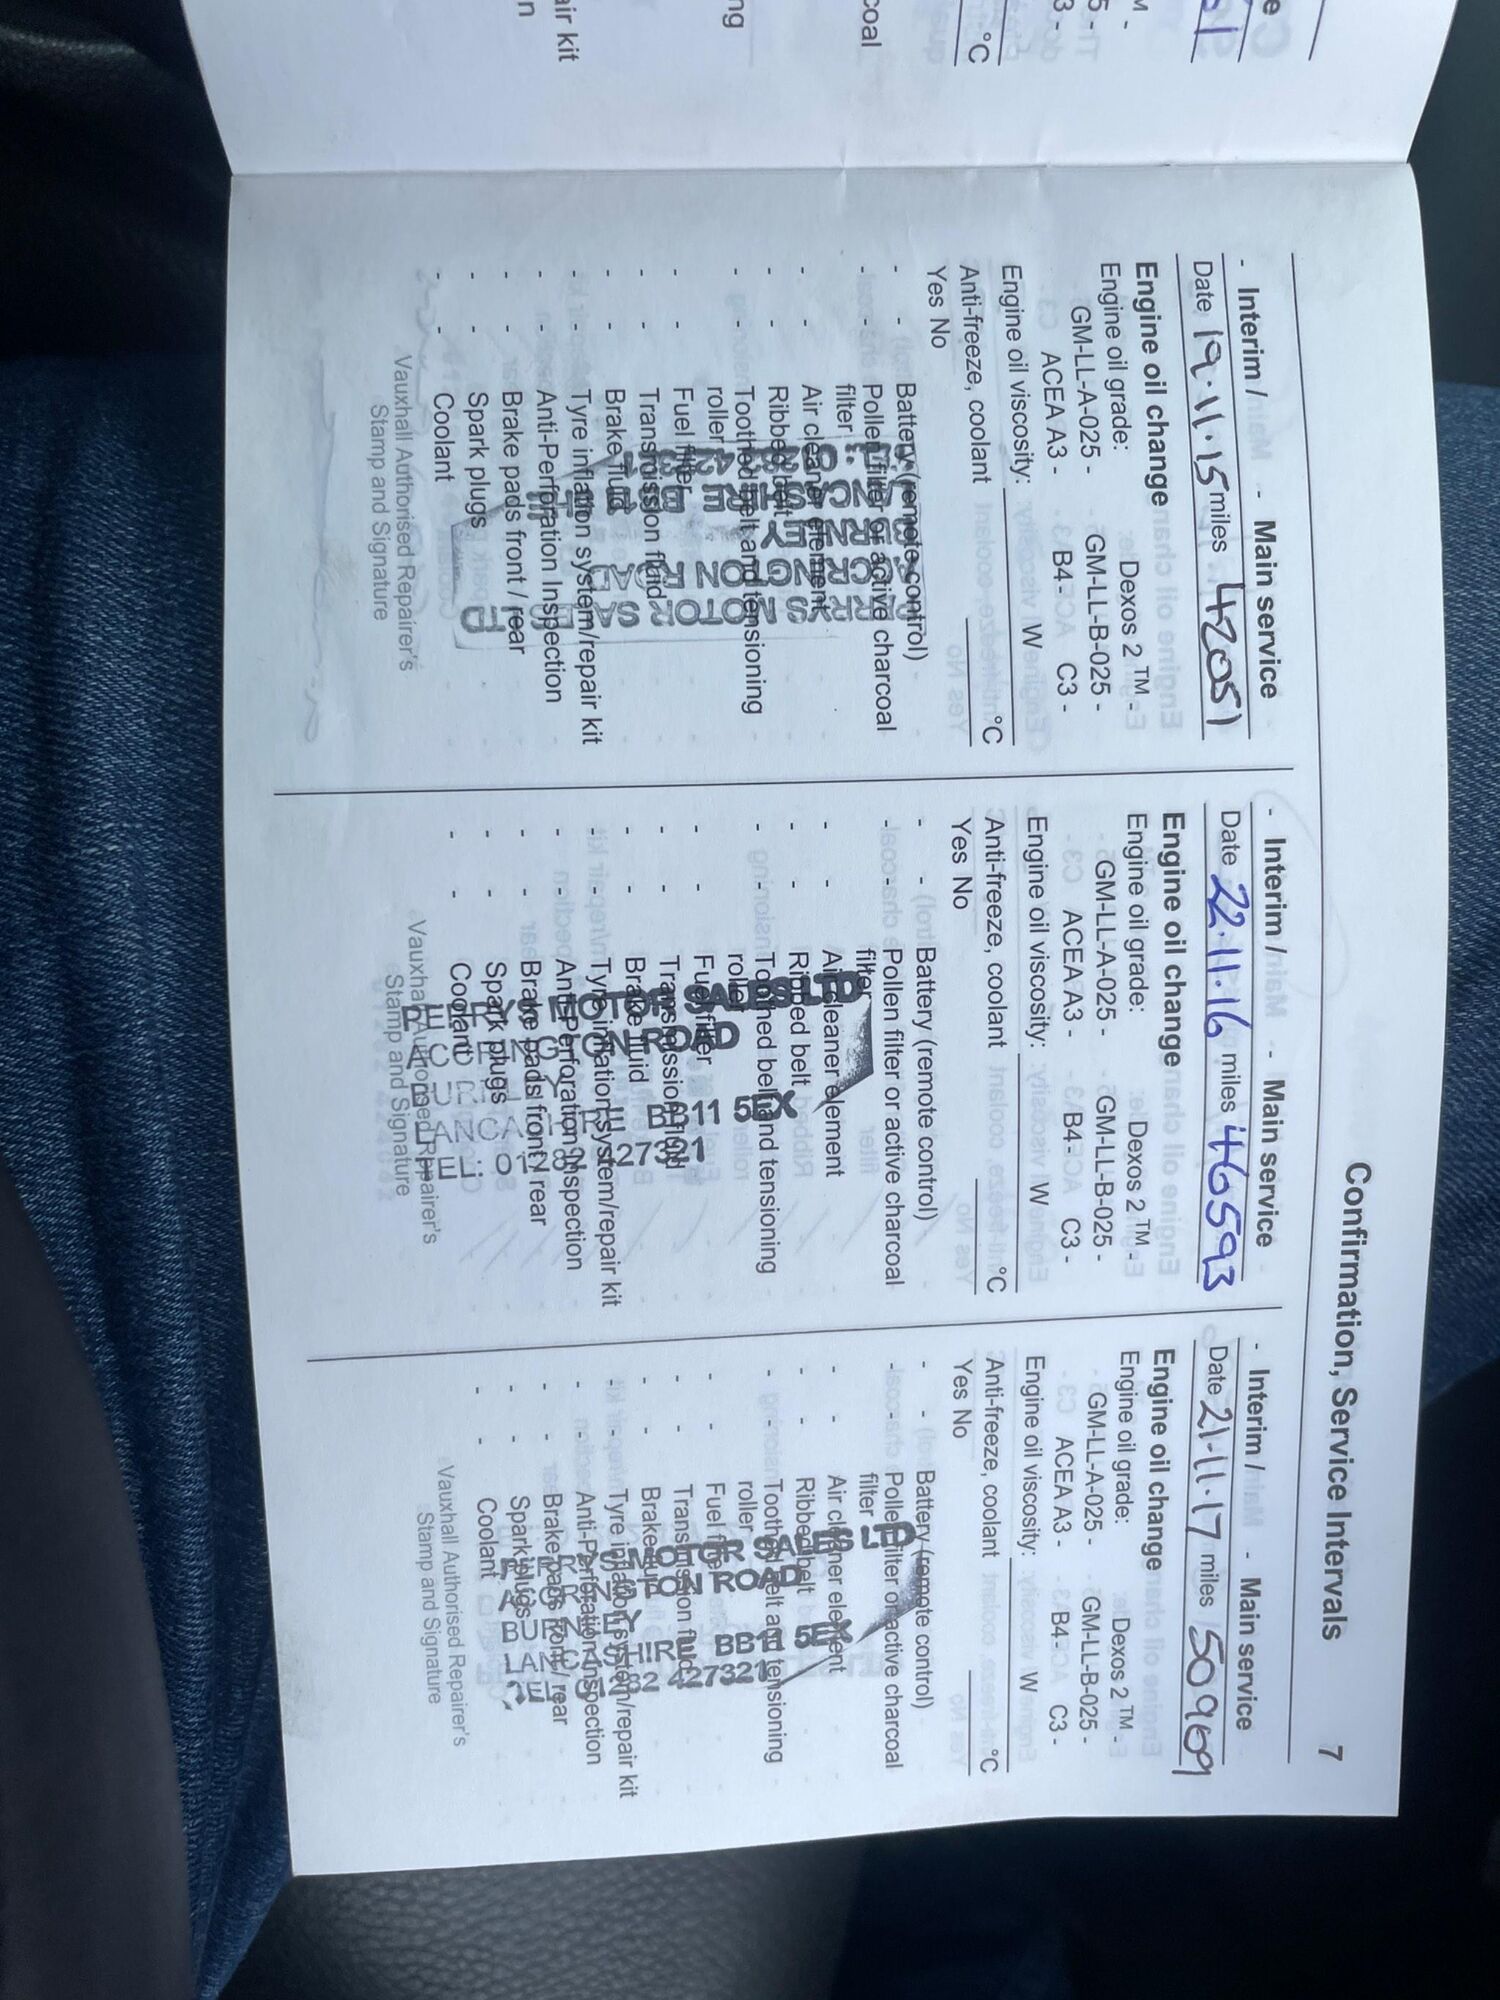 Confirmation, Service Intervals 7
- Interim / - Main service
Date 19.11.15 miles 42051
Engine oil change
Engine oil grade: Dexos 2 TM -
GM-LL-A-025 - GM-LL-B-025 -
ACEA A3 - B4 - C3 -
Engine oil viscosity: W
Anti-freeze, coolant °C
Yes No
- - Battery (remote control)
- - Pollen filter or active charcoal
filter
- - Air cleaner element
- - Ribbed belt
- - Toothed belt and tensioning
roller
- - Fuel filter
- - Transmission fluid
- - Brake fluid
- - Tyre inflation system/repair kit
- - Anti-Perforation Inspection
- - Brake pads front / rear
- - Spark plugs
- - Coolant
Vauxhall Authorised Repairer's
Stamp and Signature
- Interim / - Main service
Date 22.11.16 miles 46593
Engine oil change
Engine oil grade: Dexos 2 TM -
GM-LL-A-025 - GM-LL-B-025 -
ACEA A3 - B4 - C3 -
Engine oil viscosity: W
Anti-freeze, coolant °C
Yes No
- - Battery (remote control)
- - Pollen filter or active charcoal
filter
- - Air cleaner element
- - Ribbed belt
- - Toothed belt and tensioning
roller
- - Fuel filter
- - Transmission fluid
- - Brake fluid
- - Tyre inflation system/repair kit
- - Anti-Perforation Inspection
- - Brake pads front / rear
- - Spark plugs
- - Coolant
MOTOR SALES LTD
ROAD
BB11 5EX
Vauxhall Authorised Repairer's
Stamp and Signature
- Interim / - Main service
Date 21.11.17 miles 50969
Engine oil change
Engine oil grade: Dexos 2 TM -
GM-LL-A-025 - GM-LL-B-025 -
ACEA A3 - B4 - C3 -
Engine oil viscosity: W
Anti-freeze, coolant °C
Yes No
- - Battery (remote control)
- - Pollen filter or active charcoal
filter
- - Air cleaner element
- - Ribbed belt
- - Toothed belt and tensioning
roller
- - Fuel filter
- - Transmission fluid
- - Brake fluid
- - Tyre inflation system/repair kit
- - Anti-Perforation Inspection
- - Brake pads front / rear
- - Spark plugs
- - Coolant
MOTOR SALES LTD
ROAD
BB11 5EX
427321
Vauxhall Authorised Repairer's
Stamp and Signature